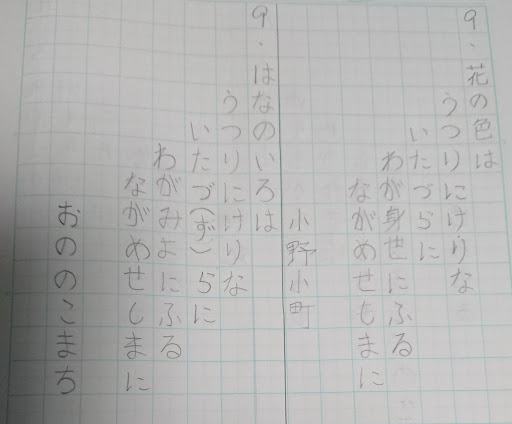 9.花の色は
うつりにけりな
いたづらに
わが身世にふる
ながめせしまに
小野小町
9.はなのいろは
うつりにけりな
いたづ(ず)らに
わがみよにふる
ながめせしまに
おののこまち